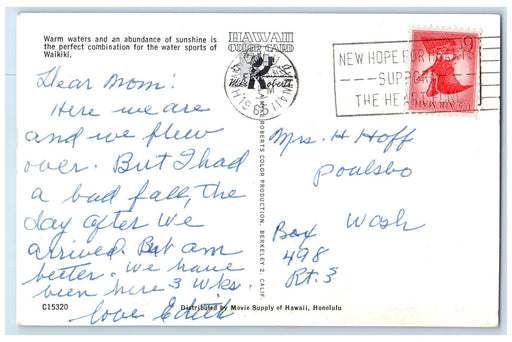 Warm waters and an abundance of sunshine is
the perfect combination for the water sports of
Waikiki.
HAWAII
COLOR CARD
Mike Roberts
HAWAII
1965
NEW HOPE FOR
SUPPORT
THE HEART
6
U.S. AIR MAIL
Dear Mom:
Here we are
and we flew
over. But I had
a bad fall, the
day after we
arrived. But am
better. We have
been here 3 wks.
love Edith
Mrs. H Hoff
Poulsbo
Wash
Box
498
Rt. 3
A MIKE ROBERTS COLOR PRODUCTION, BERKELEY 2, CALIF.
C15320
Distributed by Movie Supply of Hawaii, Honolulu